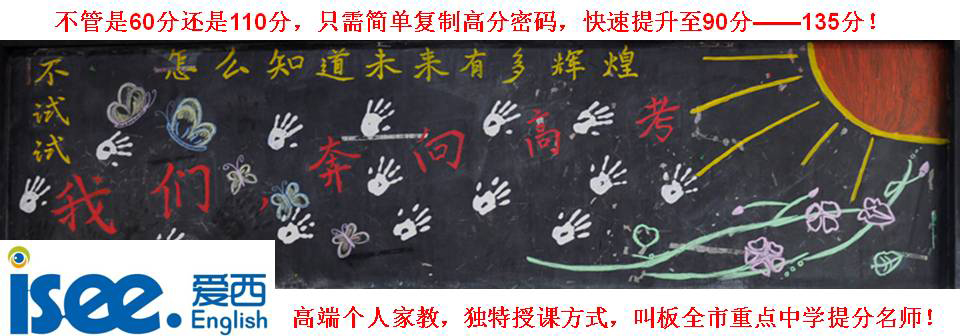 不管是60分还是110分，只需简单复制高分密码，快速提升至90分——135分！
不试试
怎么知道未来有多辉煌
我们，奔向高考
isee.爱西English
高端个人家教，独特授课方式，叫板全市重点中学提分名师！